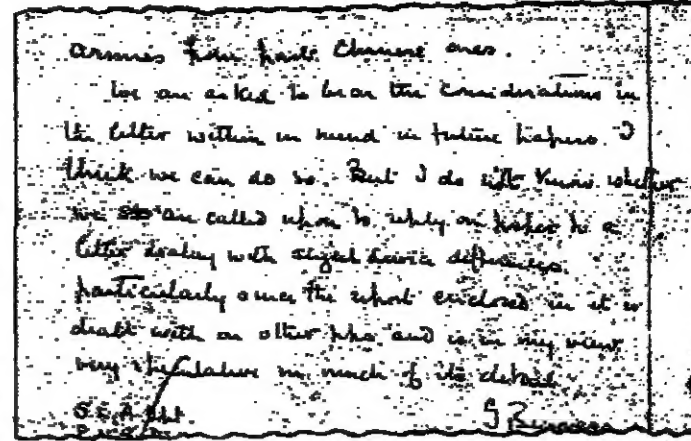 armies from Chinese ones.
We are asked to bear the considerations in
the letter within in mind in future papers. I
think we can do so. But I do not know whether
we are called upon to reply on paper to a
letter dealing with alleged differences
particularly since the report enclosed in it is
dealt with on other pps. and is in my view
very speculative in much of its detail.
S.E.A. Dept
G Burgess